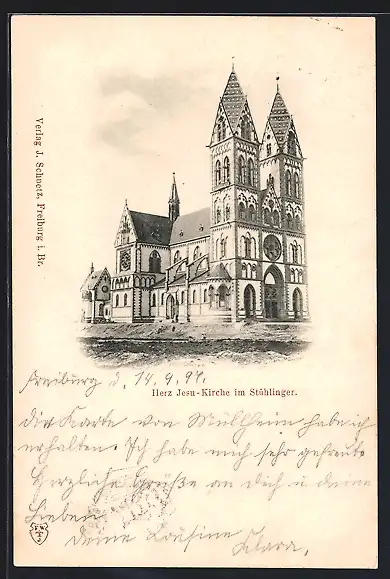 Verlag J. Schwetz, Freiburg i. Br.
Herz Jesu-Kirche im Stühlinger.
Freiburg d. 14.9.97.
die Karte von Müllheim habe ich
erhalten. Ich habe mich sehr gefreut
Herzliche Grüße an dich u deine
Lieben
deine Cousine Klara.